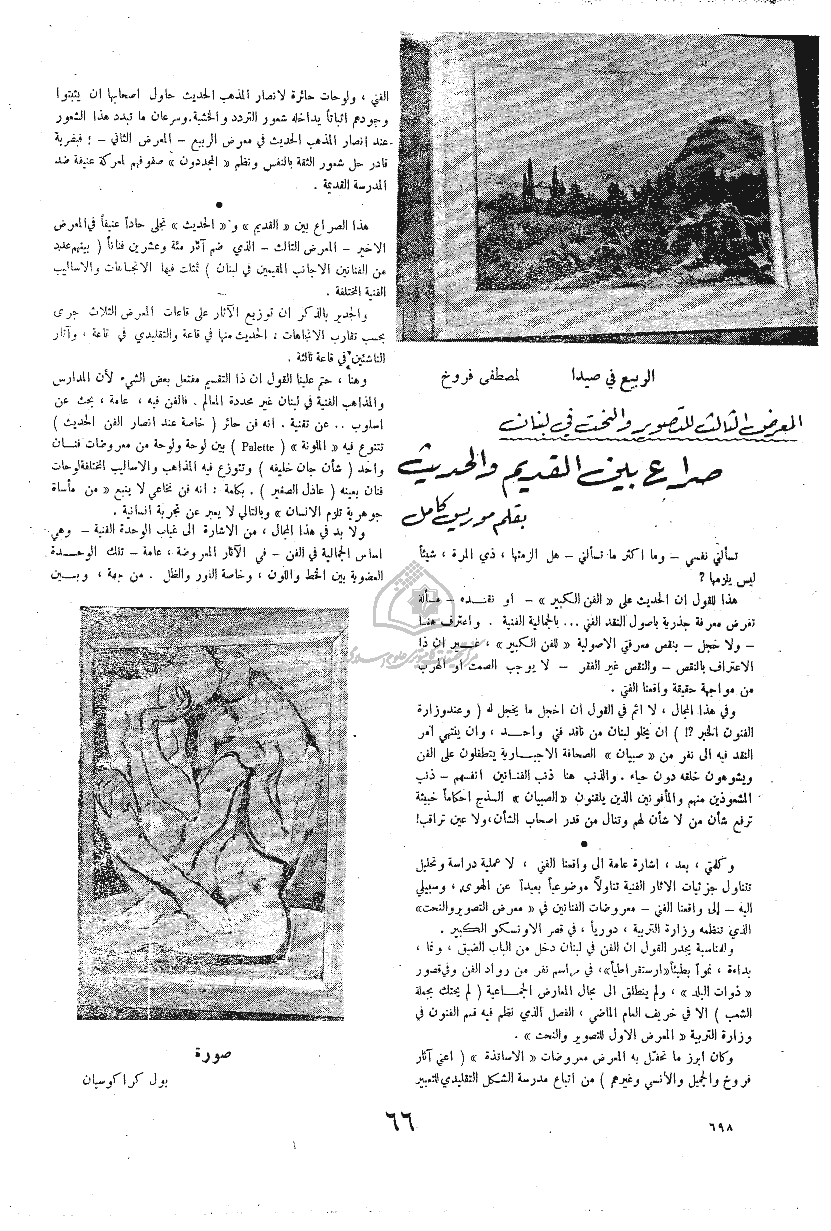 الربيع في صيدا لمصطفى فروخ
المعرض الثالث للتصوير والنحت في لبنان
صراع بين القديم والحديث
بقلم موريس كامل
تسألني نفسي – وما اكثر ما تسألني – هل الزمتها ، ذي المرة ، شيئاً
ليس يلزمها ؟
هذا للقول ان الحديث على « الفن الكبير » – او نقــده – مسألة
تفرض معرفة جذرية باصول النقد الفني ... بالجمالية الفنية . واعترف هنا
– ولا خجل – بنقص معرفتي الاصولية « للفن الكبير » ، غــير ان ذا
الاعتراف بالنقص – والنقص غير الفقر – لا يوجب الصمت او الهرب
من مواجهة حقيقة واقعنا الفني .
وفي هذا المجال ، لا اثم في القول ان اخجل ما يخجل له ( وعند وزارة
الفنون الخبر ؟! ) ان يخلو لبنان من ناقد فني واحــد ، وان ينتهي امر
النقد فيه الى نفر من « صبيان » الصحافة الاخبــارية يتطفلون على الفن
ويشوهون خلقه دون حياء . والذنب هنا ذنب الفنــانين انفسهم – ذنب
المشعوذين منهم والمأفونين الذين يلقنون « الصبيان » السذج احكاماً خبيثة
ترفع شأن من لا شأن لهم وتنال من قدر اصحاب الشأن ، ولا عين تراقب!
●
وكلمتي ، بعد ، اشارة عامة الى واقعنا الفني ، لا عملية دراسة وتحليل
تتناول جزئيات الاثار الفنية تناولاً موضوعياً بعيداً عن الهوى ، وسبيلي
اليه – إلى واقعنا الفني – معروضات الفنانين في « معرض التصوير والنحت »
الذي تنظمه وزارة التربية ، دورياً ، في قصر الاونسكو الكبير .
وللمناسبة يجدر القول ان الفن في لبنان دخل من الباب الضيق ، ونما ،
بداءة ، نمواً بطيئاً «ارستقراطياً» ، في مراسم نفر من رواد الفن وفي قصور
« ذوات البلد » ، ولم ينطلق الى مجال المعارض الجمــاعية ( لم يحتك بجملة
الشعب ) الا في خريف العام الماضي ، الفصل الذي نظم فيه قسم الفنون في
وزارة التربية « المعرض الاول للتصوير والنحت » .
وكان ابرز ما نحتفل به المعرض معروضات « الاساتذة » ( اعني آثار
فروخ والجميل والأنسي وغيرهم ) من اتباع مدرسة الشكل التقليدي للتعبير
الفني ، ولوحات حائرة لانصار المذهب الحديث حاول اصحابها ان يثبتوا
وجودهم اثباتاً يداخله شعور التردد والخشية. وسرعان ما تبدد هذا الشعور
عند انصار المذهب الحديث في معرض الربيع – المعرض الثاني – ؛ فبضربة
قادر حل شعور الثقة بالنفس ونظم « المجددون » صفوفهم لمعركة عنيفة ضد
المدرسة القديمة .
●
هذا الصراع بين « القديم » و « الحديث » تجلى حاداً عنيفاً في المعرض
الاخير – المعرض الثالث – الذي ضم آثار مئة وعشرين فناناً ( بينهم عديد
من الفنانين الاجانب المقيمين في لبنان ) تمثلت فيها الاتجاهات والاساليب
الفنية المختلفة .
والجدير بالذكر ان توزيع الآثار على قاعات المعرض الثلاث جرى
بحسب تقارب الاتجاهات : الحديث منها في قاعة والتقليدي في قاعة ، وآثار
الناشئين في قاعة ثالثة .
وهنا ، حتم علينا القول ان ذا التقسيم مفتعل بعض الشيء لأن المدارس
والمذاهب الفنية في لبنان غير محددة المعالم . فالفن فيه ، عامة ، بحث عن
اسلوب .. عن تقنية . انه فن حائر ( خاصة عند انصار الفن الحديث )
تتنوع فيه « الملونة » ( Palette ) بين لوحة ولوحة من معروضات فنــان
واحد ( شأن جان خليفه ) وتتوزع فيه المذاهب والاساليب المختلفة لوحات
فنان بعينه ( عادل الصغير ) . بكلمة : انه فن نخاعي لا ينبع « من مأساة
جوهرية تلزم الانسان » وبالتالي لا يعبر عن تجربة انسانية .
ولا بد في هذا المجال ، من الاشارة الى غياب الوحدة الفنية – وهي
اساس الجمالية في الفن – في الآثار المعروضة ، عامة – تلك الوحــدة
العضوية بين الخط واللون ، وخاصة النور والظل . من جهة ، وبــين
صورة
بول كراكوسيان
٦٦
٦٩٨